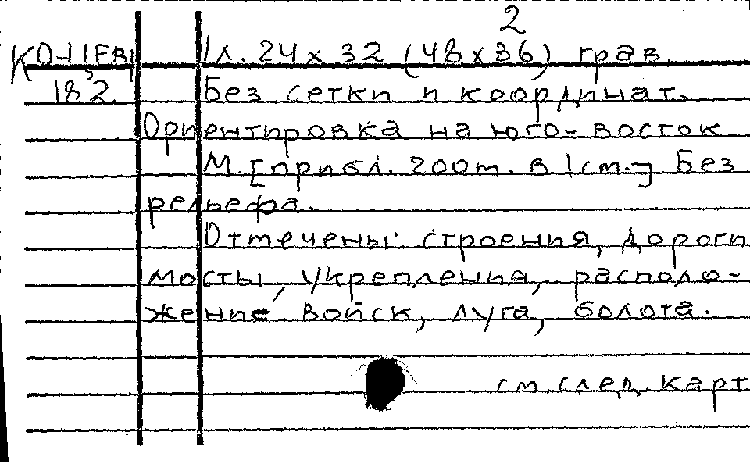 2
КО-II FR/ 1л. 24 x 32 (48 x 36) грав.
18,2. Без сетки и координат.
Ориентировка на юго-восток
М. [прибл. 200т. в 1см.] Без
рельефа.
Отмечены: строения, дороги
мосты, укрепления, располо-
жение войск, луга, болота.
см след карт